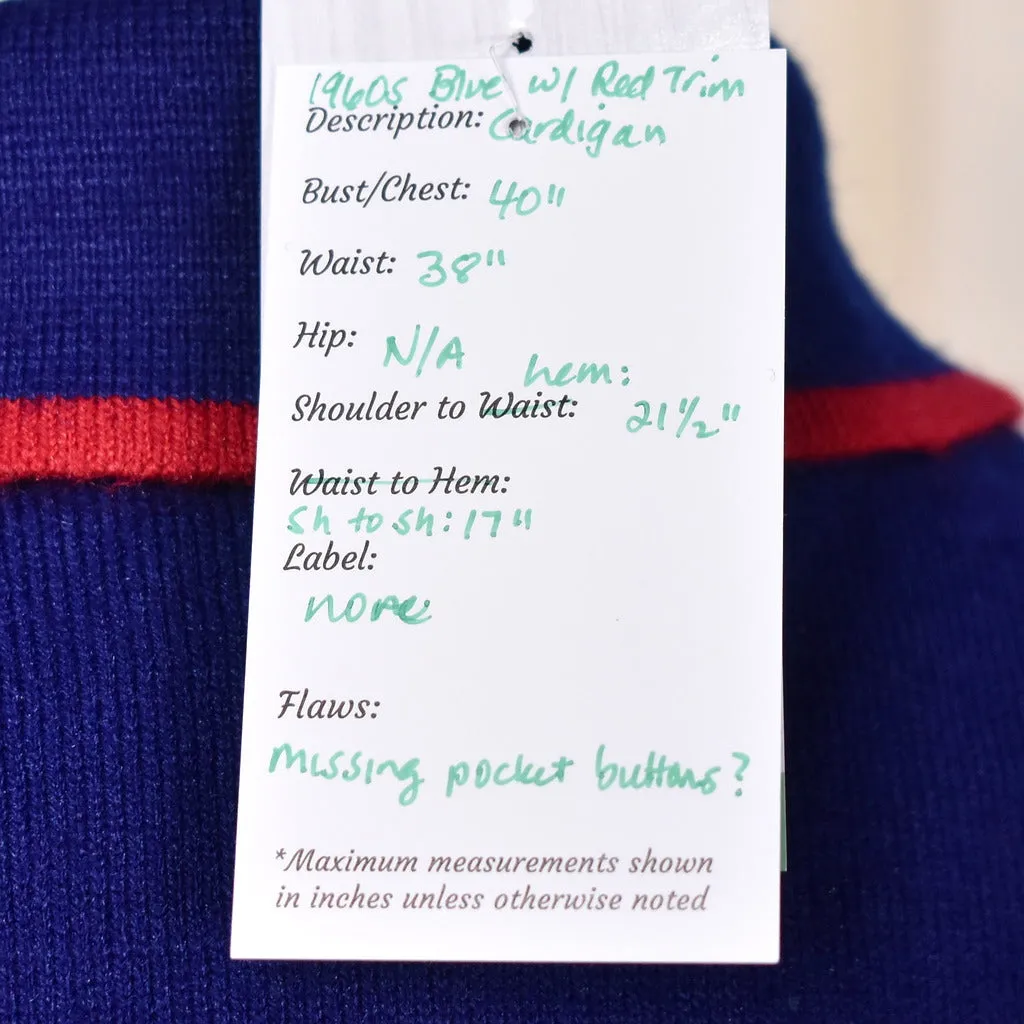 1960s Blue w/ Red Trim
Description: Cardigan
Bust/Chest: 40"
Waist: 38"
Hip: N/A
hem:
Shoulder to Waist: 21 1/2"
Waist to Hem:
Sh to sh: 17"
Label:
none
Flaws:
Missing pocket buttons?
*Maximum measurements shown
in inches unless otherwise noted